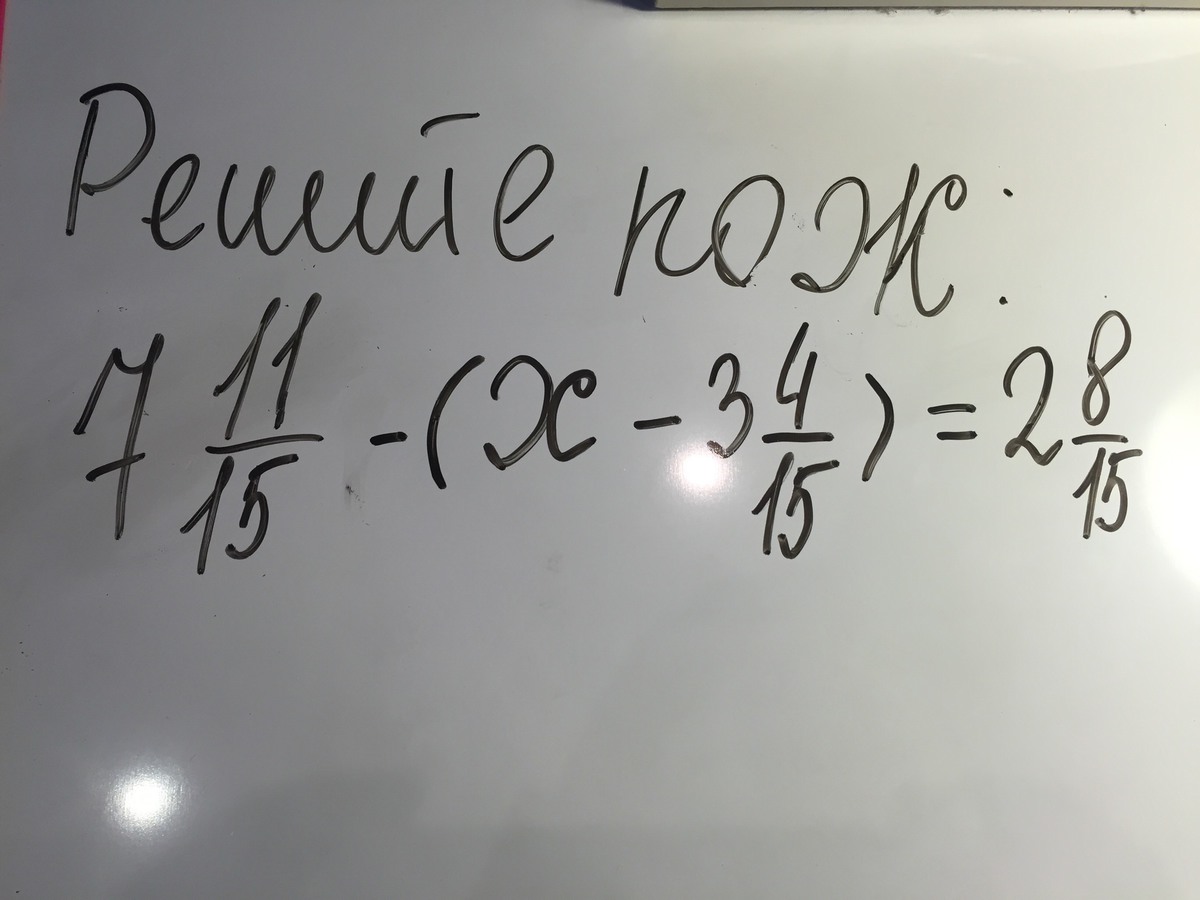 Решите пож:
7 11/15 - (x - 3 4/15) = 2 8/15